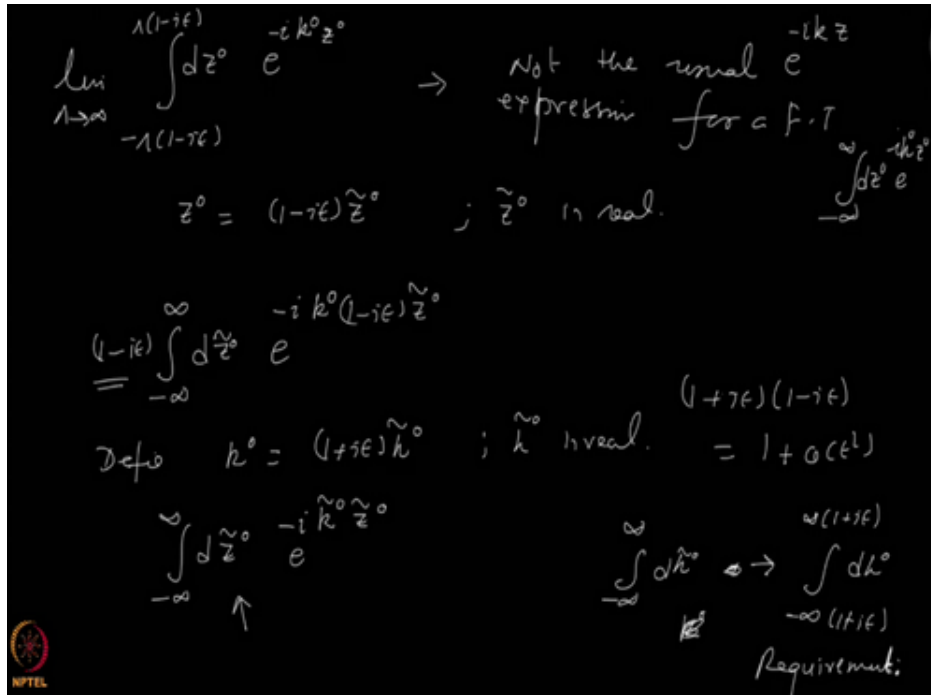 lim Λ→∞ ∫_{-Λ(1-iε)}^{Λ(1-iε)} dz⁰ e^{-ik⁰z⁰} → Not the usual e^{-ikz}
expression for a F.T
∫_{-∞}^{∞} dz⁰ e^{-ik⁰z⁰}
z⁰ = (1-iε) z̃⁰ ; z̃⁰ is real.
(1-iε) ∫_{-∞}^{∞} dz̃⁰ e^{-ik⁰(1-iε)z̃⁰}
Define k⁰ = (1+iε) k̃⁰ ; k̃⁰ is real.
(1+iε)(1-iε)
= 1 + O(ε²)
∫_{-∞}^{∞} dz̃⁰ e^{-ik̃⁰z̃⁰}
↑
∫_{-∞}^{∞} dk̃⁰ → ∫_{-∞(1+iε)}^{∞(1+iε)} dk⁰
Requirement:
NPTEL